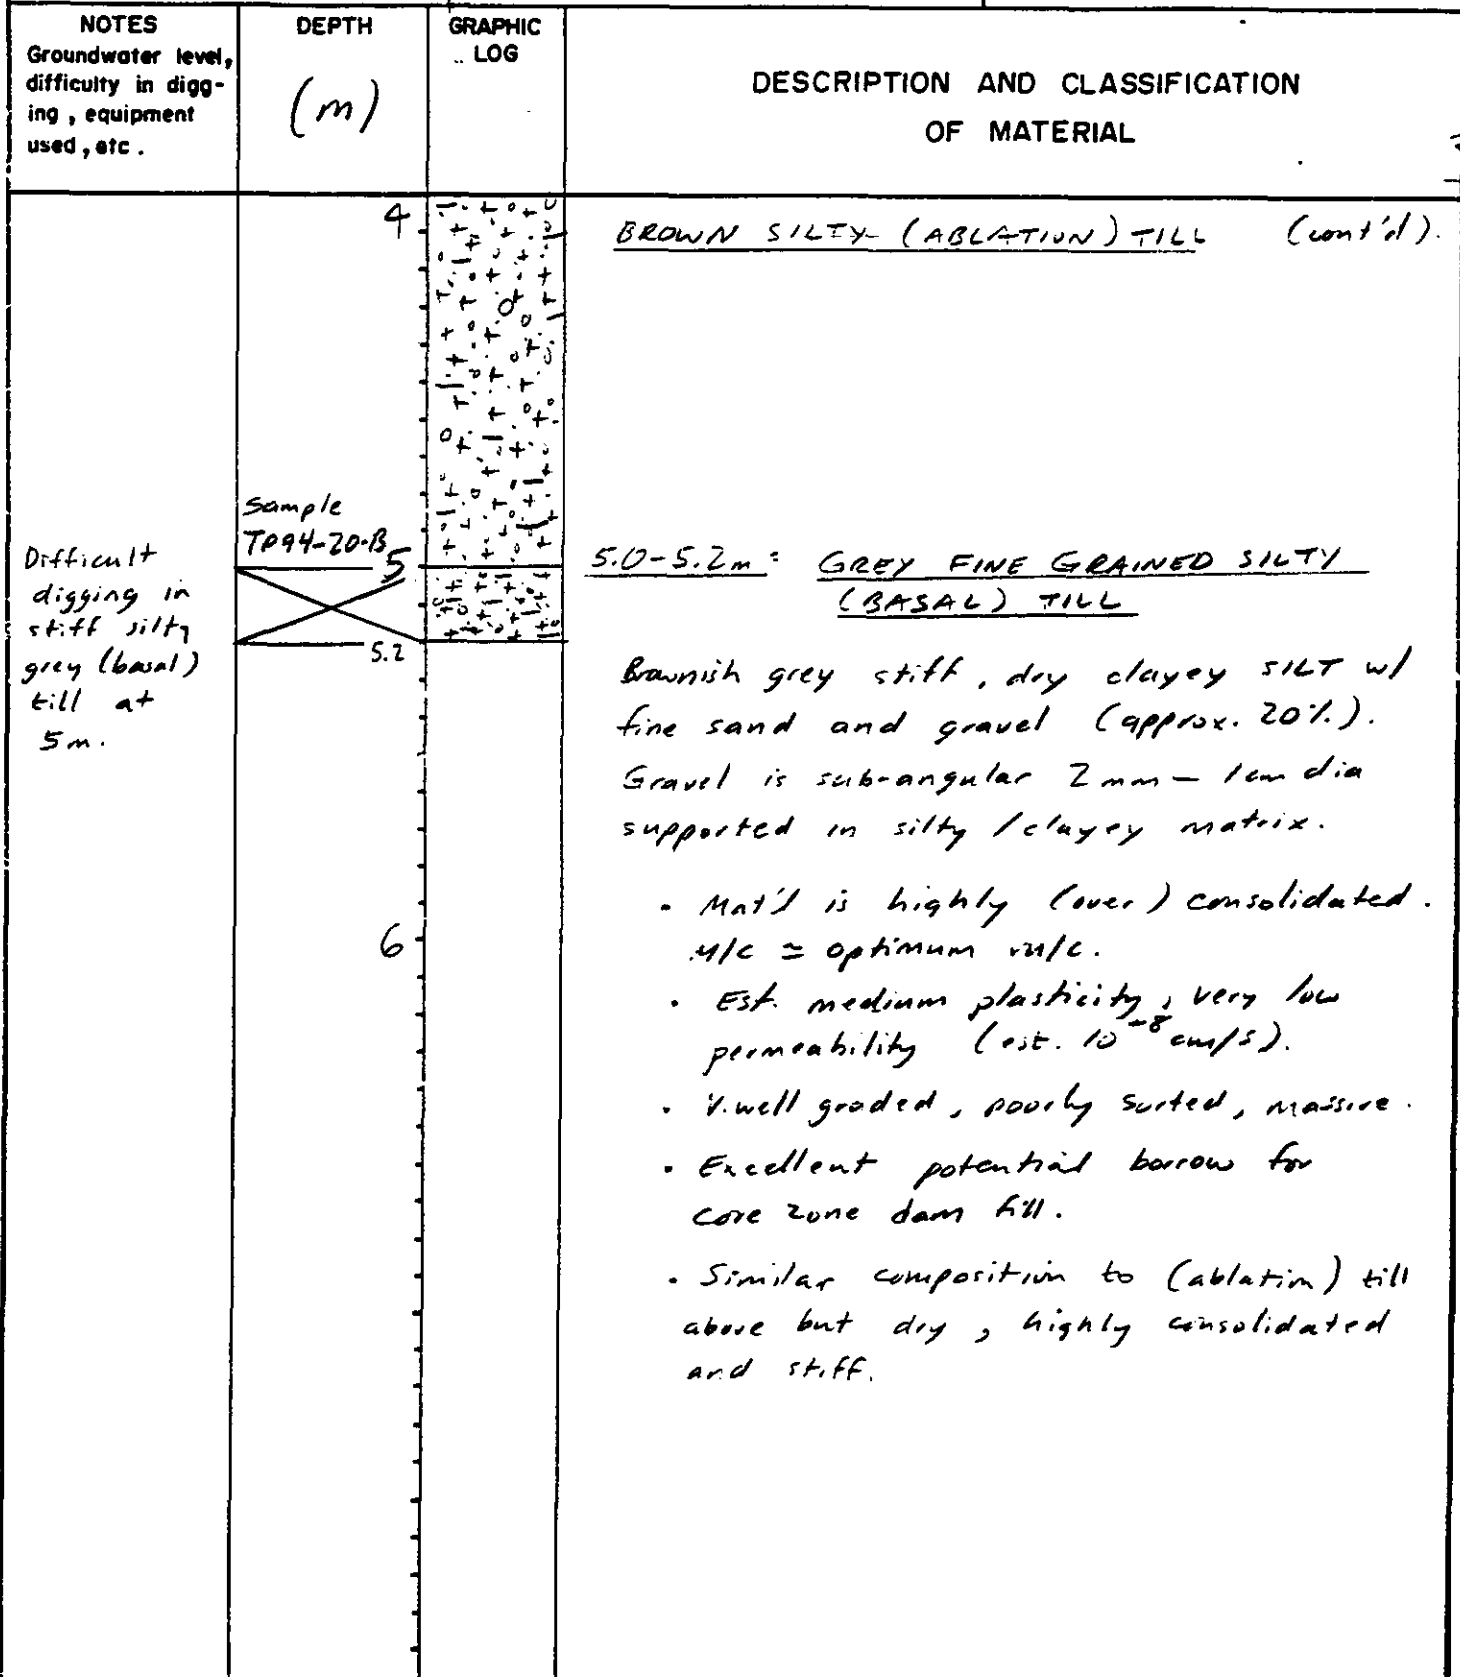 NOTES
Groundwater level,
difficulty in digg-
ing, equipment
used, etc.
DEPTH
(m)
GRAPHIC
LOG
DESCRIPTION AND CLASSIFICATION
OF MATERIAL
4
BROWN SILTY (ABLATION) TILL (cont'd).
Sample
TP94-20-B
5
5.2
6
Difficult
digging in
stiff silty
grey (basal)
till at
5m.
5.0-5.2m: GREY FINE GRAINED SILTY
(BASAL) TILL
Brownish grey stiff, dry clayey SILT w/
fine sand and gravel (approx. 20%).
Gravel is sub-angular 2mm - 1cm dia
supported in silty/clayey matrix.
• Mat'l is highly (over) consolidated.
M/C ≃ optimum m/c.
• Est. medium plasticity, very low
permeability (est. 10⁻⁸ cm/s).
• V.well graded, poorly sorted, massive.
• Excellent potential borrow for
core zone dam fill.
• Similar composition to (ablation) till
above but dry, highly consolidated
and stiff.